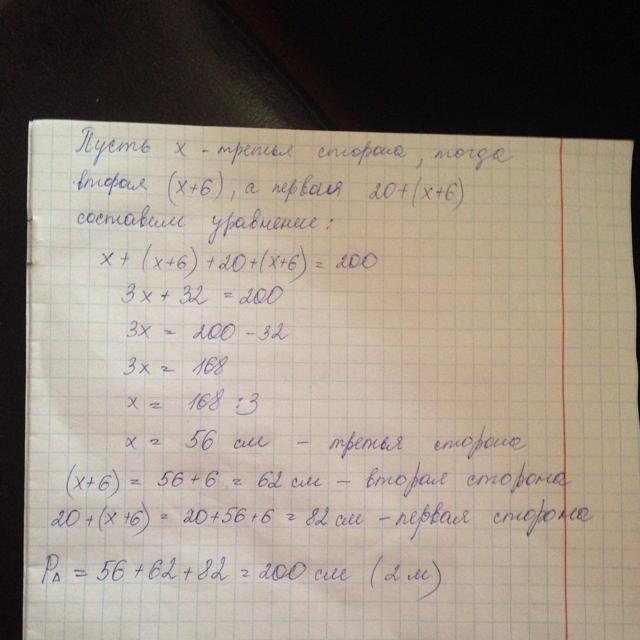 Пусть х - третья сторона, тогда
вторая (х+6), а первая 20+(х+6)
составим уравнение:
х + (х+6) + 20+(х+6) = 200
3х + 32 = 200
3х = 200 - 32
3х = 168
х = 168 : 3
х = 56 см - третья сторона
(х+6) = 56 + 6 = 62 см - вторая сторона
20 + (х+6) = 20+56+6 = 82 см - первая сторона
PΔ = 56 + 62 + 82 = 200 см (2 м)